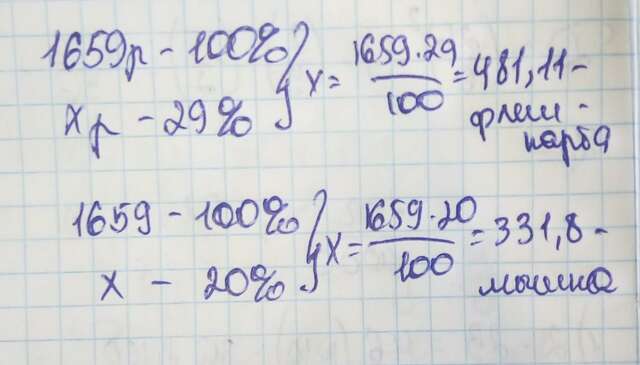 1659р - 100%
xр - 29%
} x = 1659·29 / 100 = 481,11 -
флеш -
карта
1659 - 100%
x - 20%
} x = 1659·20 / 100 = 331,8 -
мышка